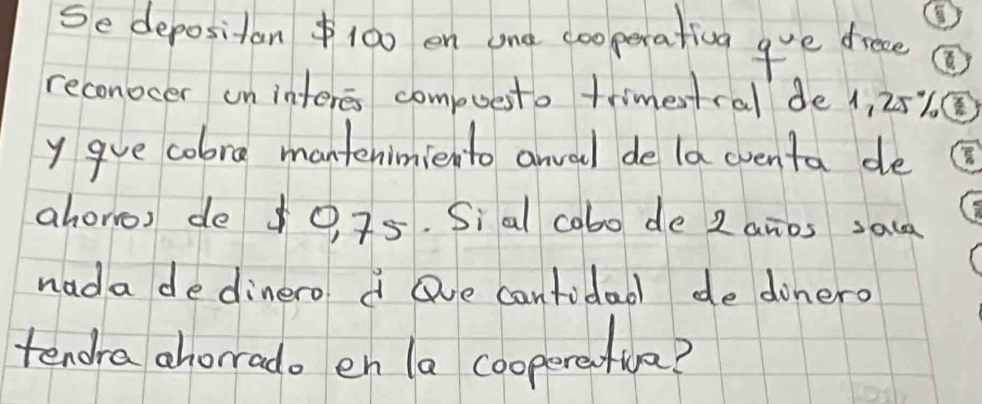 Se depositan $100 en una cooperativa que frece
reconocer un interés compuesto trimestral de 1,25%
y que cobra mantenimiento anual de la cuenta de
ahorros de $0,75. Si al cabo de 2 años saca
nada de dinero ¿ Que cantidad de dinero
tendra ahorrado en la cooperativa?